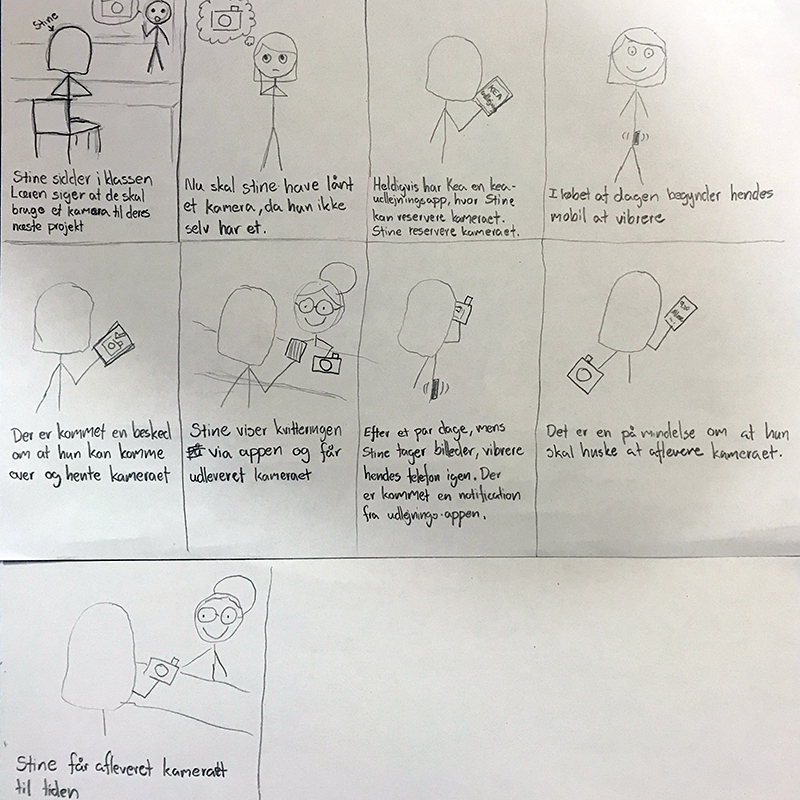 Stine
Stine sidder i klassen
Læren siger at de skal
bruge et kamera til deres
næste projekt
Nu skal stine have lånt
et kamera, da hun ikke
selv har et.
KEA
Heldigvis har Kea en kea-
udlejningsapp, hvor Stine
kan reservere kameraet.
Stine reservere kameraet.
I løbet af dagen begynder hendes
mobil at vibrere
Der er kommet en besked
om at hun kan komme
over og hente kameraet
Stine viser kvitteringen
via appen og får
udleveret kameraet
Efter et par dage, mens
Stine tager billeder, vibrere
hendes telefon igen. Der
er kommet en notification
fra udlejnings-appen.
Det er en på mindelse om at hun
skal huske at aflevere kameraet.
Stine får afleveret kameraet
til tiden